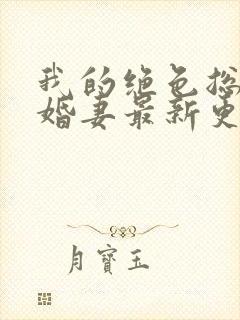 我的绝色总
婚妻最新更
月宝玉